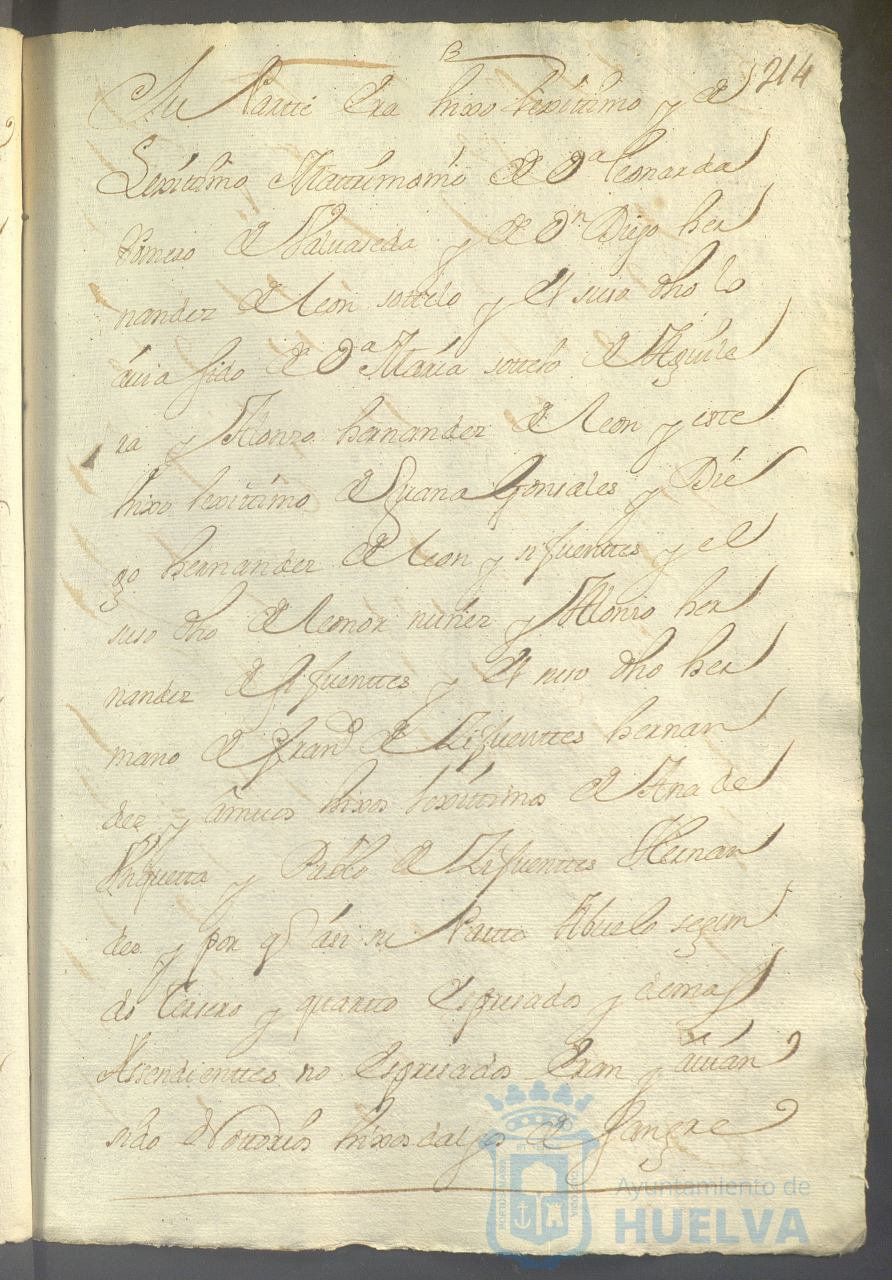 214
Su Partte Era hixo lexittimo y de
Lexittimo Mattrimonio de Dª leonarda
Romero de Valuaseda y de Dⁿ Diego her
nandez de leon sottelo y el suso dho lo
áuia sido de Dª María sottelo de Aguile
ra y Alonzo hernandez de leon y este
hixo lexittimo de Juana Gonsales y Die
go hernandez de leon y sifuenttes y el
suso dho de leonor nuñez y Alonso her
nandez de sifuenttes y el suso dho her
mano de franᶜᵒ de Zifuenttes hernan
dez y ámuos hixos lexittimos de Ana de
y Pablo de Zifuenttes Hernan
des y por q así su Partte Abuelo segun
do tersero y quarto Espresados y demas
Assendienttes no Espresados Eran y áuian
sido Nottorios hixos dalgo de Sangre
Ayuntamiento de
HUELVA